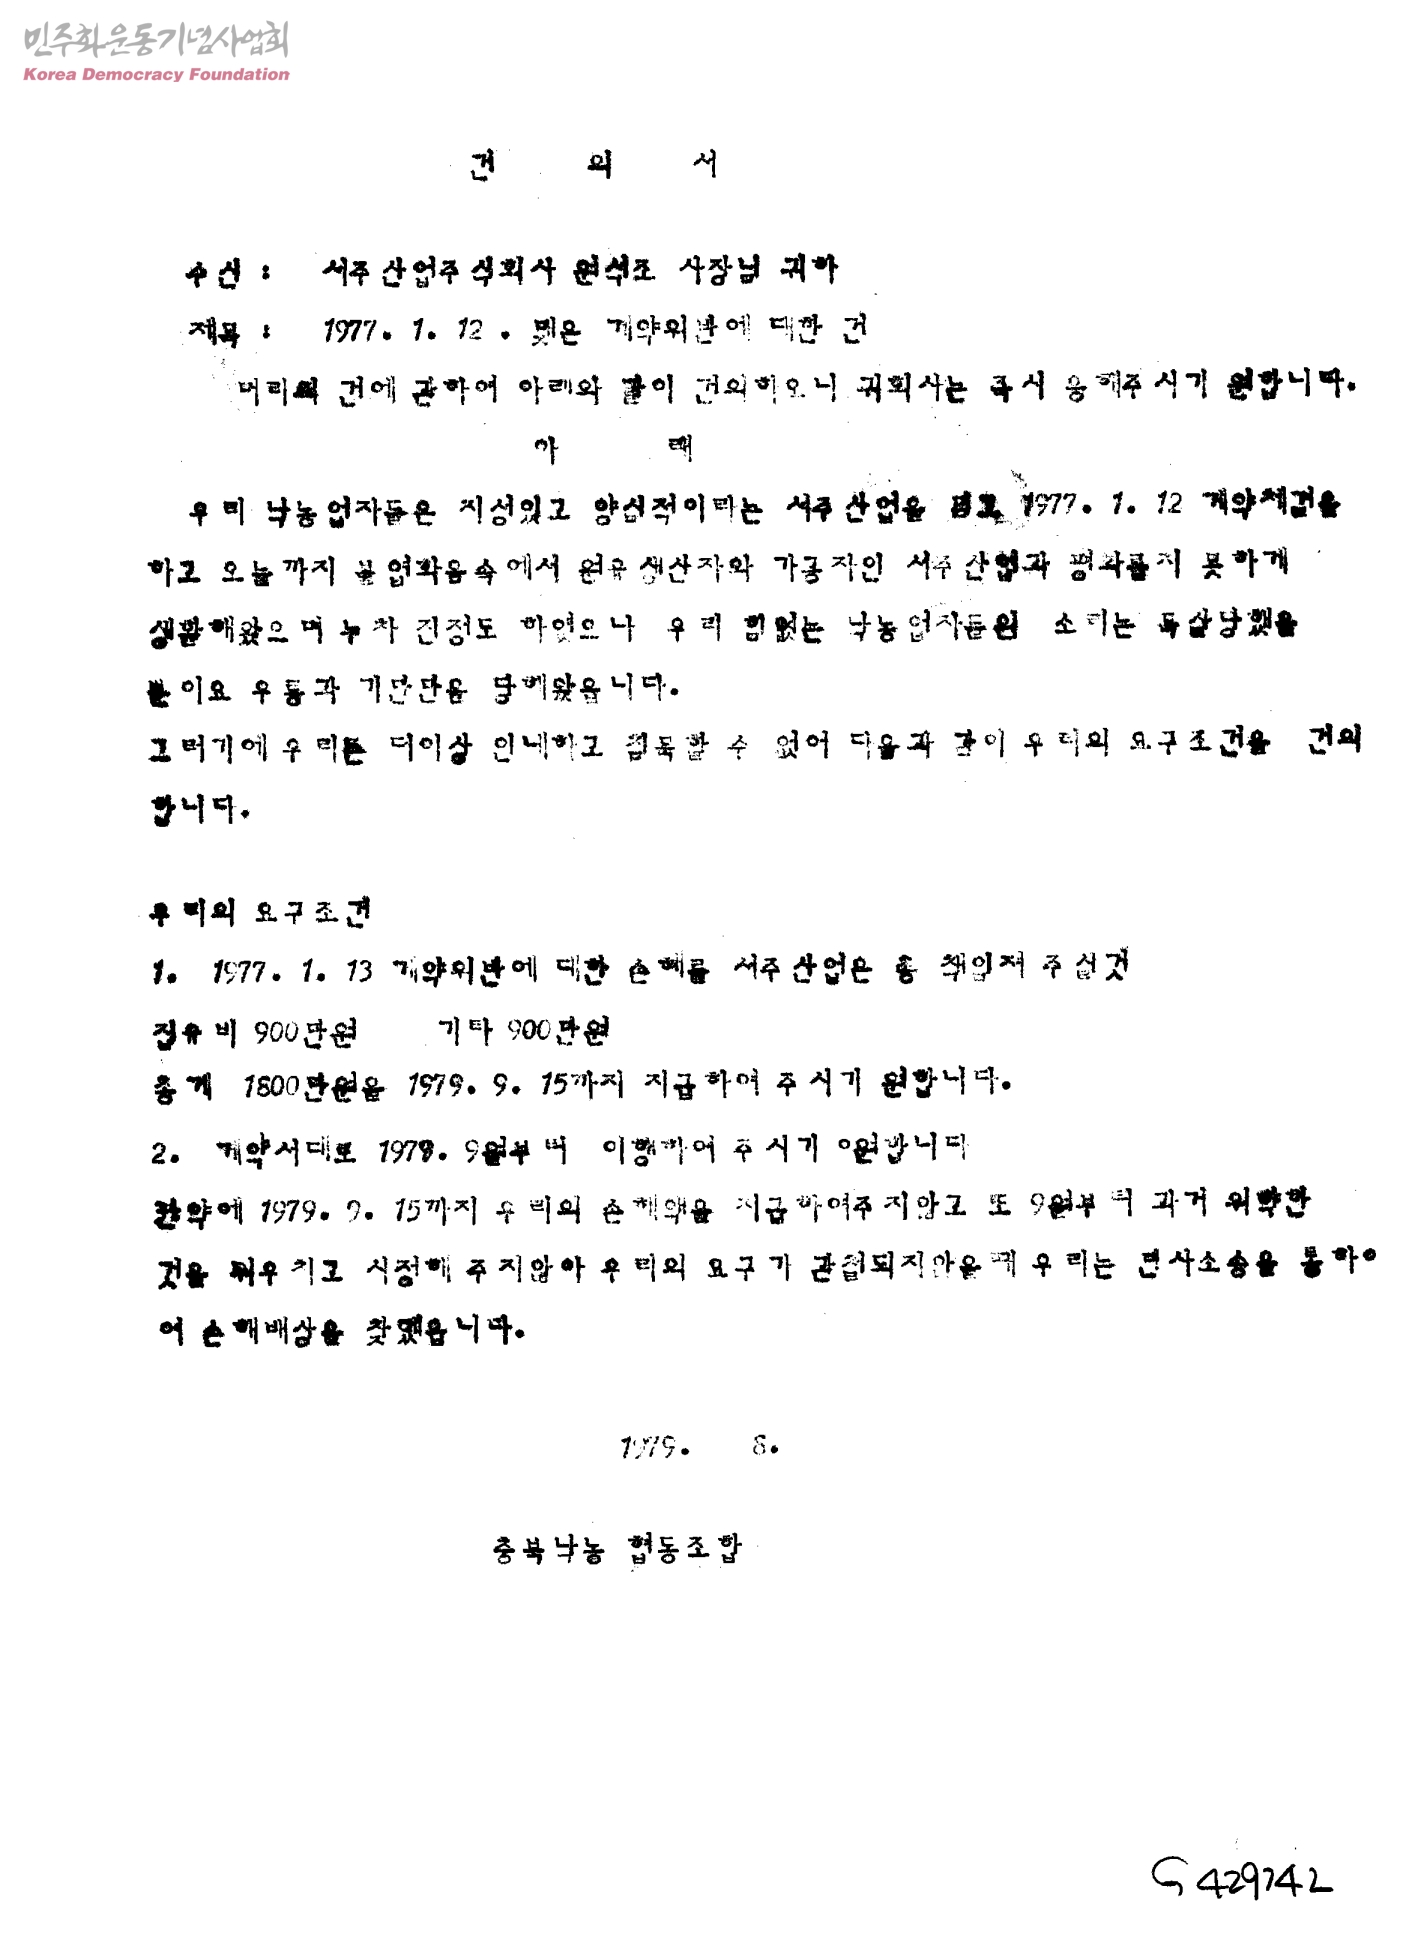 민주화운동기념사업회
Korea Democracy Foundation
건 의 서
수신 : 서주산업주식회사 원석조 사장님 귀하
제목 : 1977. 1. 12 . 맺은 계약위반에 대한 건
머리의 건에 관하여 아래와 같이 건의하오니 귀회사는 즉시 응해주시기 원합니다.
아 래
우리 낙농업자들은 지성있고 양심적이라는 서주산업을 믿고 1977. 1. 12 계약체결을
하고 오늘까지 불협화음속에서 원유생산자와 가공자인 서주산업과 평화롭지 못하게
생활해왔으며 누차 진정도 하였으나 우리 힘없는 낙농업자들의 소리는 묵살당했을
뿐이요 우롱과 기만만을 당해왔읍니다.
그러기에 우리는 더이상 인내하고 침묵할 수 없어 다음과 같이 우리의 요구조건을 건의
합니다.
우리의 요구조건
1. 1977. 1. 13 계약위반에 대한 손해를 서주산업은 총 책임져 주실것
집유비 900만원 기타 900만원
총계 1800만원을 1979. 9. 15까지 지급하여 주시기 원합니다.
2. 계약서대로 1979. 9월부터 이행하여 주시기 원합니다
만약에 1979. 9. 15까지 우리의 손해액을 지급하여주지않고 또 9월부터 과거 위약한
것을 뉘우치고 시정해 주지않아 우리의 요구가 관철되지않을때 우리는 민사소송을 통하여
어 손해배상을 찾겠읍니다.
1979. 8.
충북낙농 협동조합
G 429742